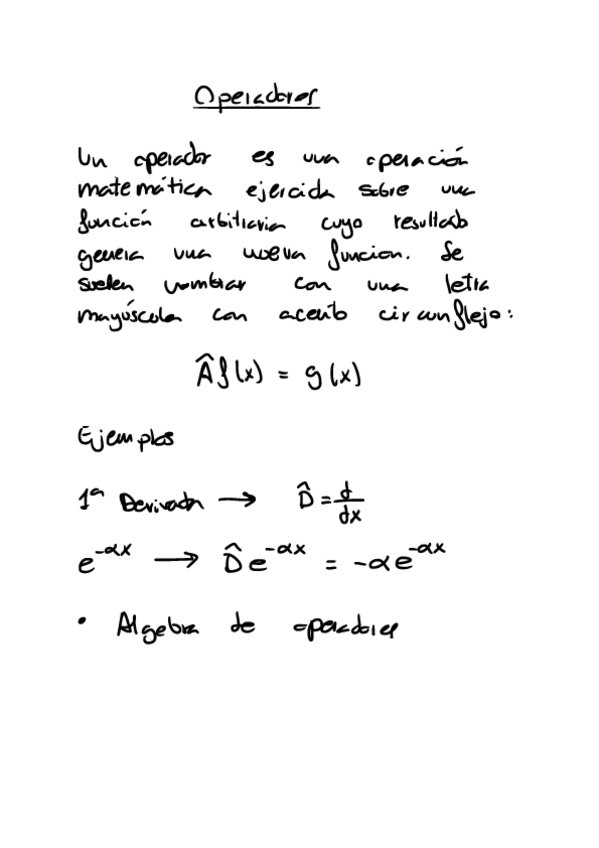 Operadores
Un operador es una operación
matemática ejercida sobre una
función arbitraria cuyo resultado
genera una nueva funcion. Se
suelen nombrar con una letra
mayúscula con acento circunflejo:
Âf(x) = g(x)
Ejemplos
1ª Derivada → D̂ = d/dx
e^{-αx} → D̂e^{-αx} = -αe^{-αx}
• Algebra de operadores